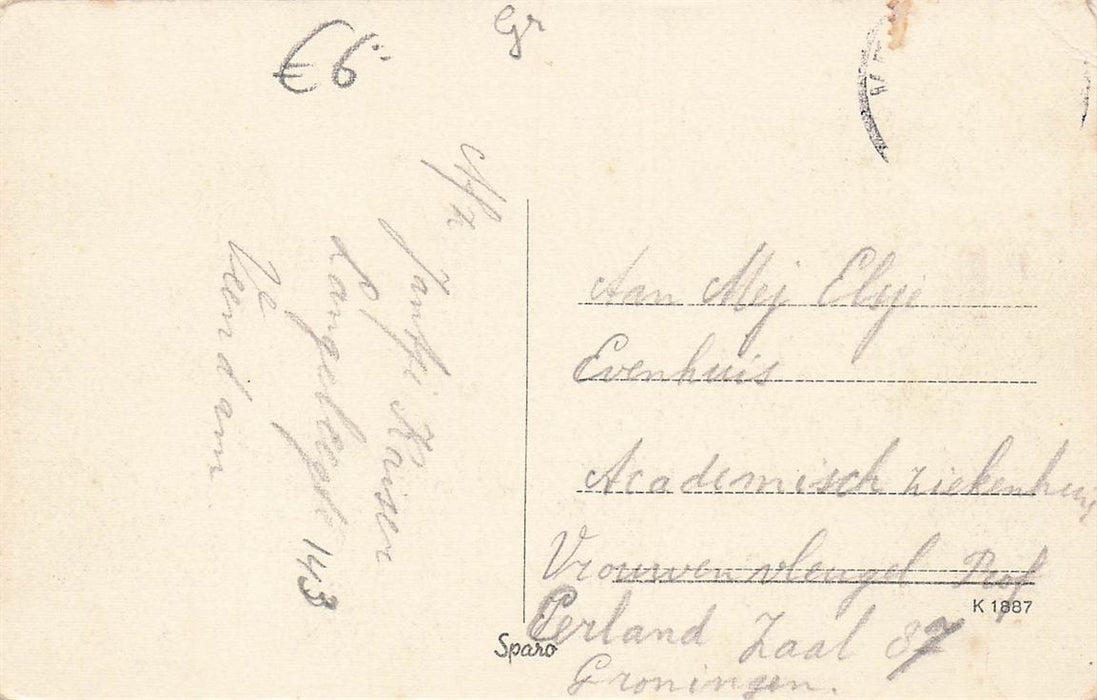 €6
Gr
Afz
Jantje Kaiser
Langeleegte 143
Veendam
Aan Mej Elsje
Evenhuis
Academisch Ziekenhuis
Vrouwenvleugel Prof
Eerland Zaal 87
Groningen.
K 1887
Sparo